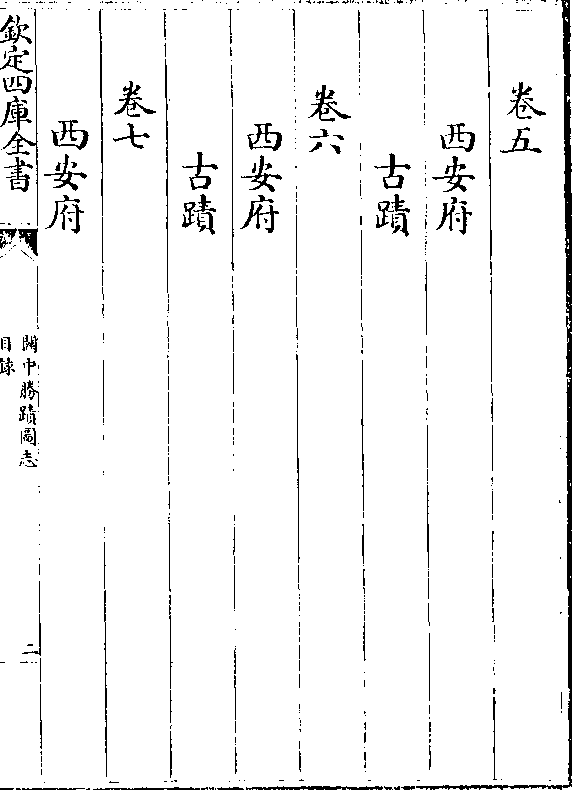 卷五
西安府
古蹟
卷六
西安府
古蹟
卷七
西安府
欽定四庫全書
關中勝蹟圖志
目録
二